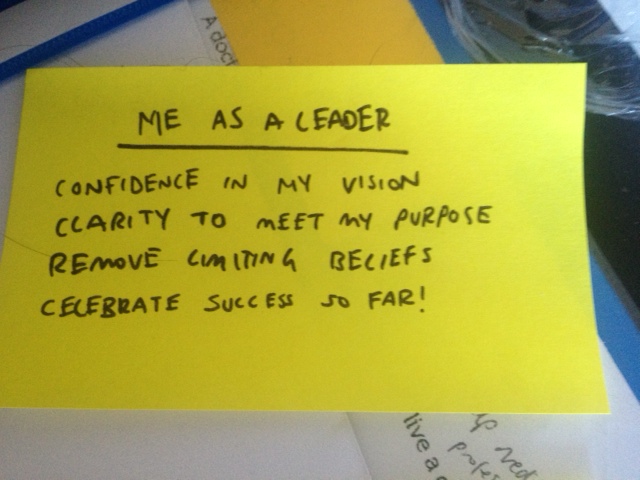 A doct
ME AS A LEADER
CONFIDENCE IN MY VISION
CLARITY TO MEET MY PURPOSE
REMOVE LIMITING BELIEFS
CELEBRATE SUCCESS SO FAR!
live a